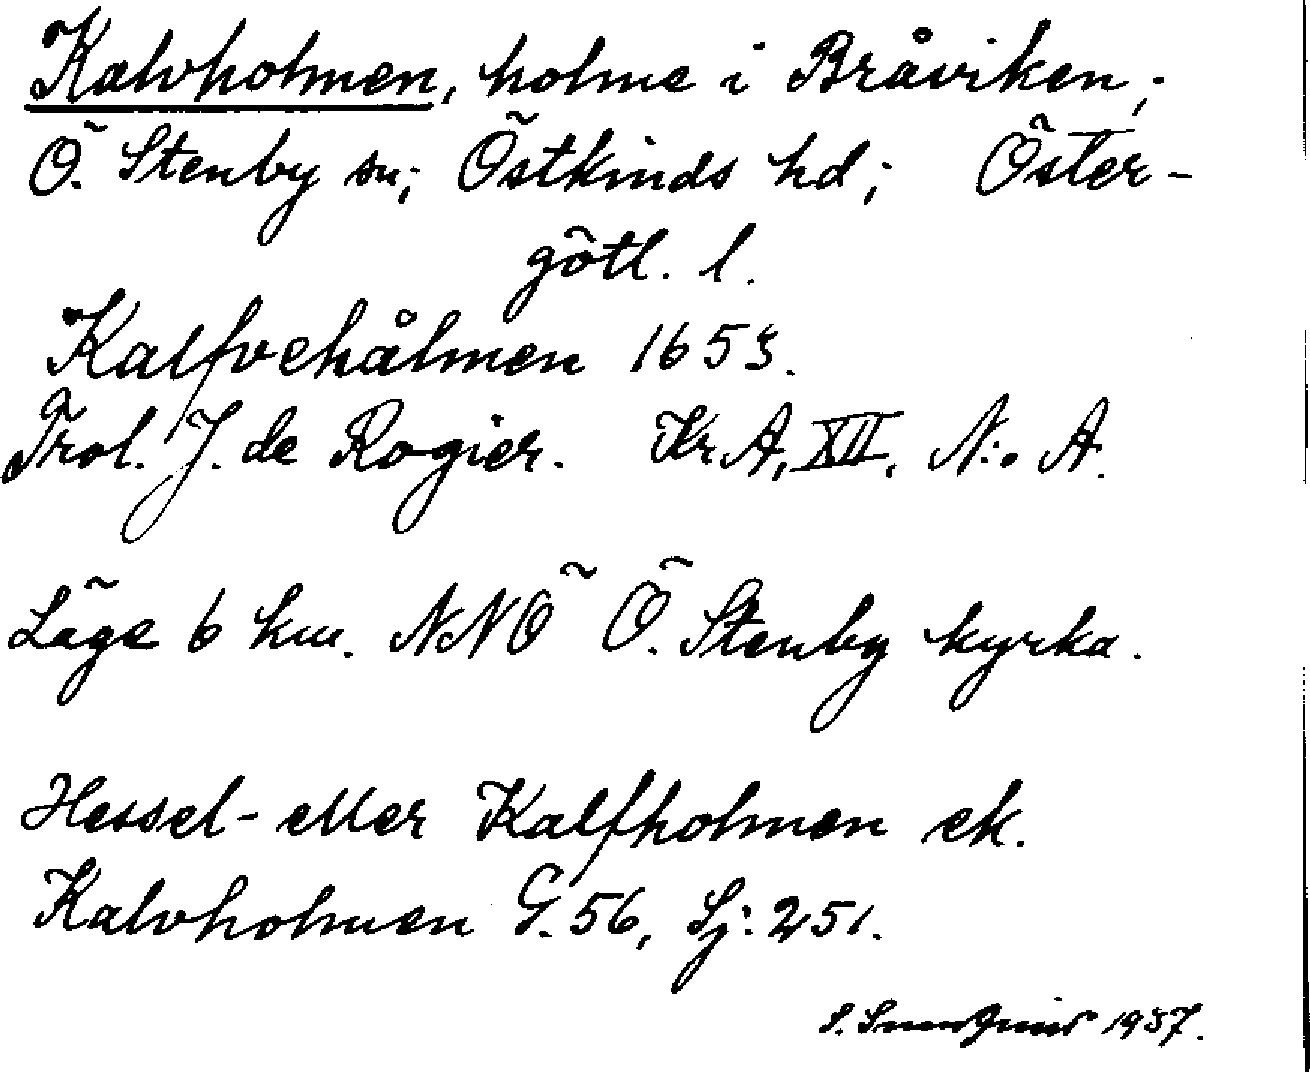 Kalvholmen, holme i Bråviken;
Ö. Stenby sn; Östkinds hd; Öster-
götl. l.
Kalfvehålmen 1653.
Trol. J. de Rogier. KrA, XII, N:o A.
Läge 6 km. NNÖ Ö. Stenby kyrka.
Hessel- eller Kalfholmen ek.
Kalvholmen G. 56, Sj: 251.
S. 1937.